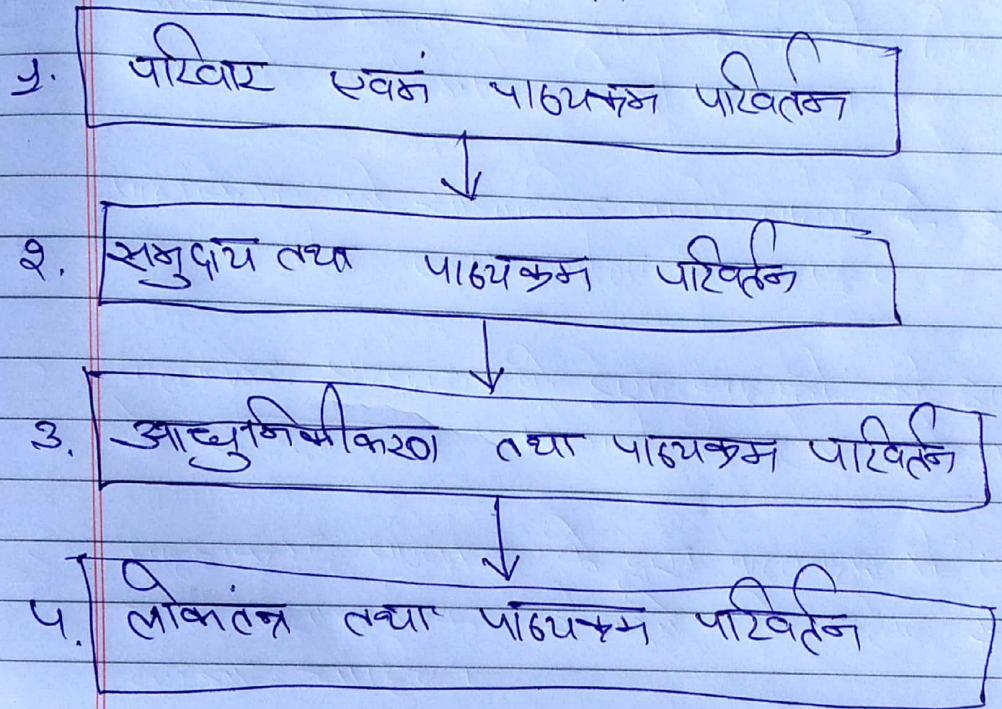 १. परिवार एवमं पाठ्यक्रम परिवर्तन
२. समुदाय तथा पाठ्यक्रम परिवर्तन
३. आधुनिकीकरण तथा पाठ्यक्रम परिवर्तन
४. लोकतंत्र तथा पाठ्यक्रम परिवर्तन